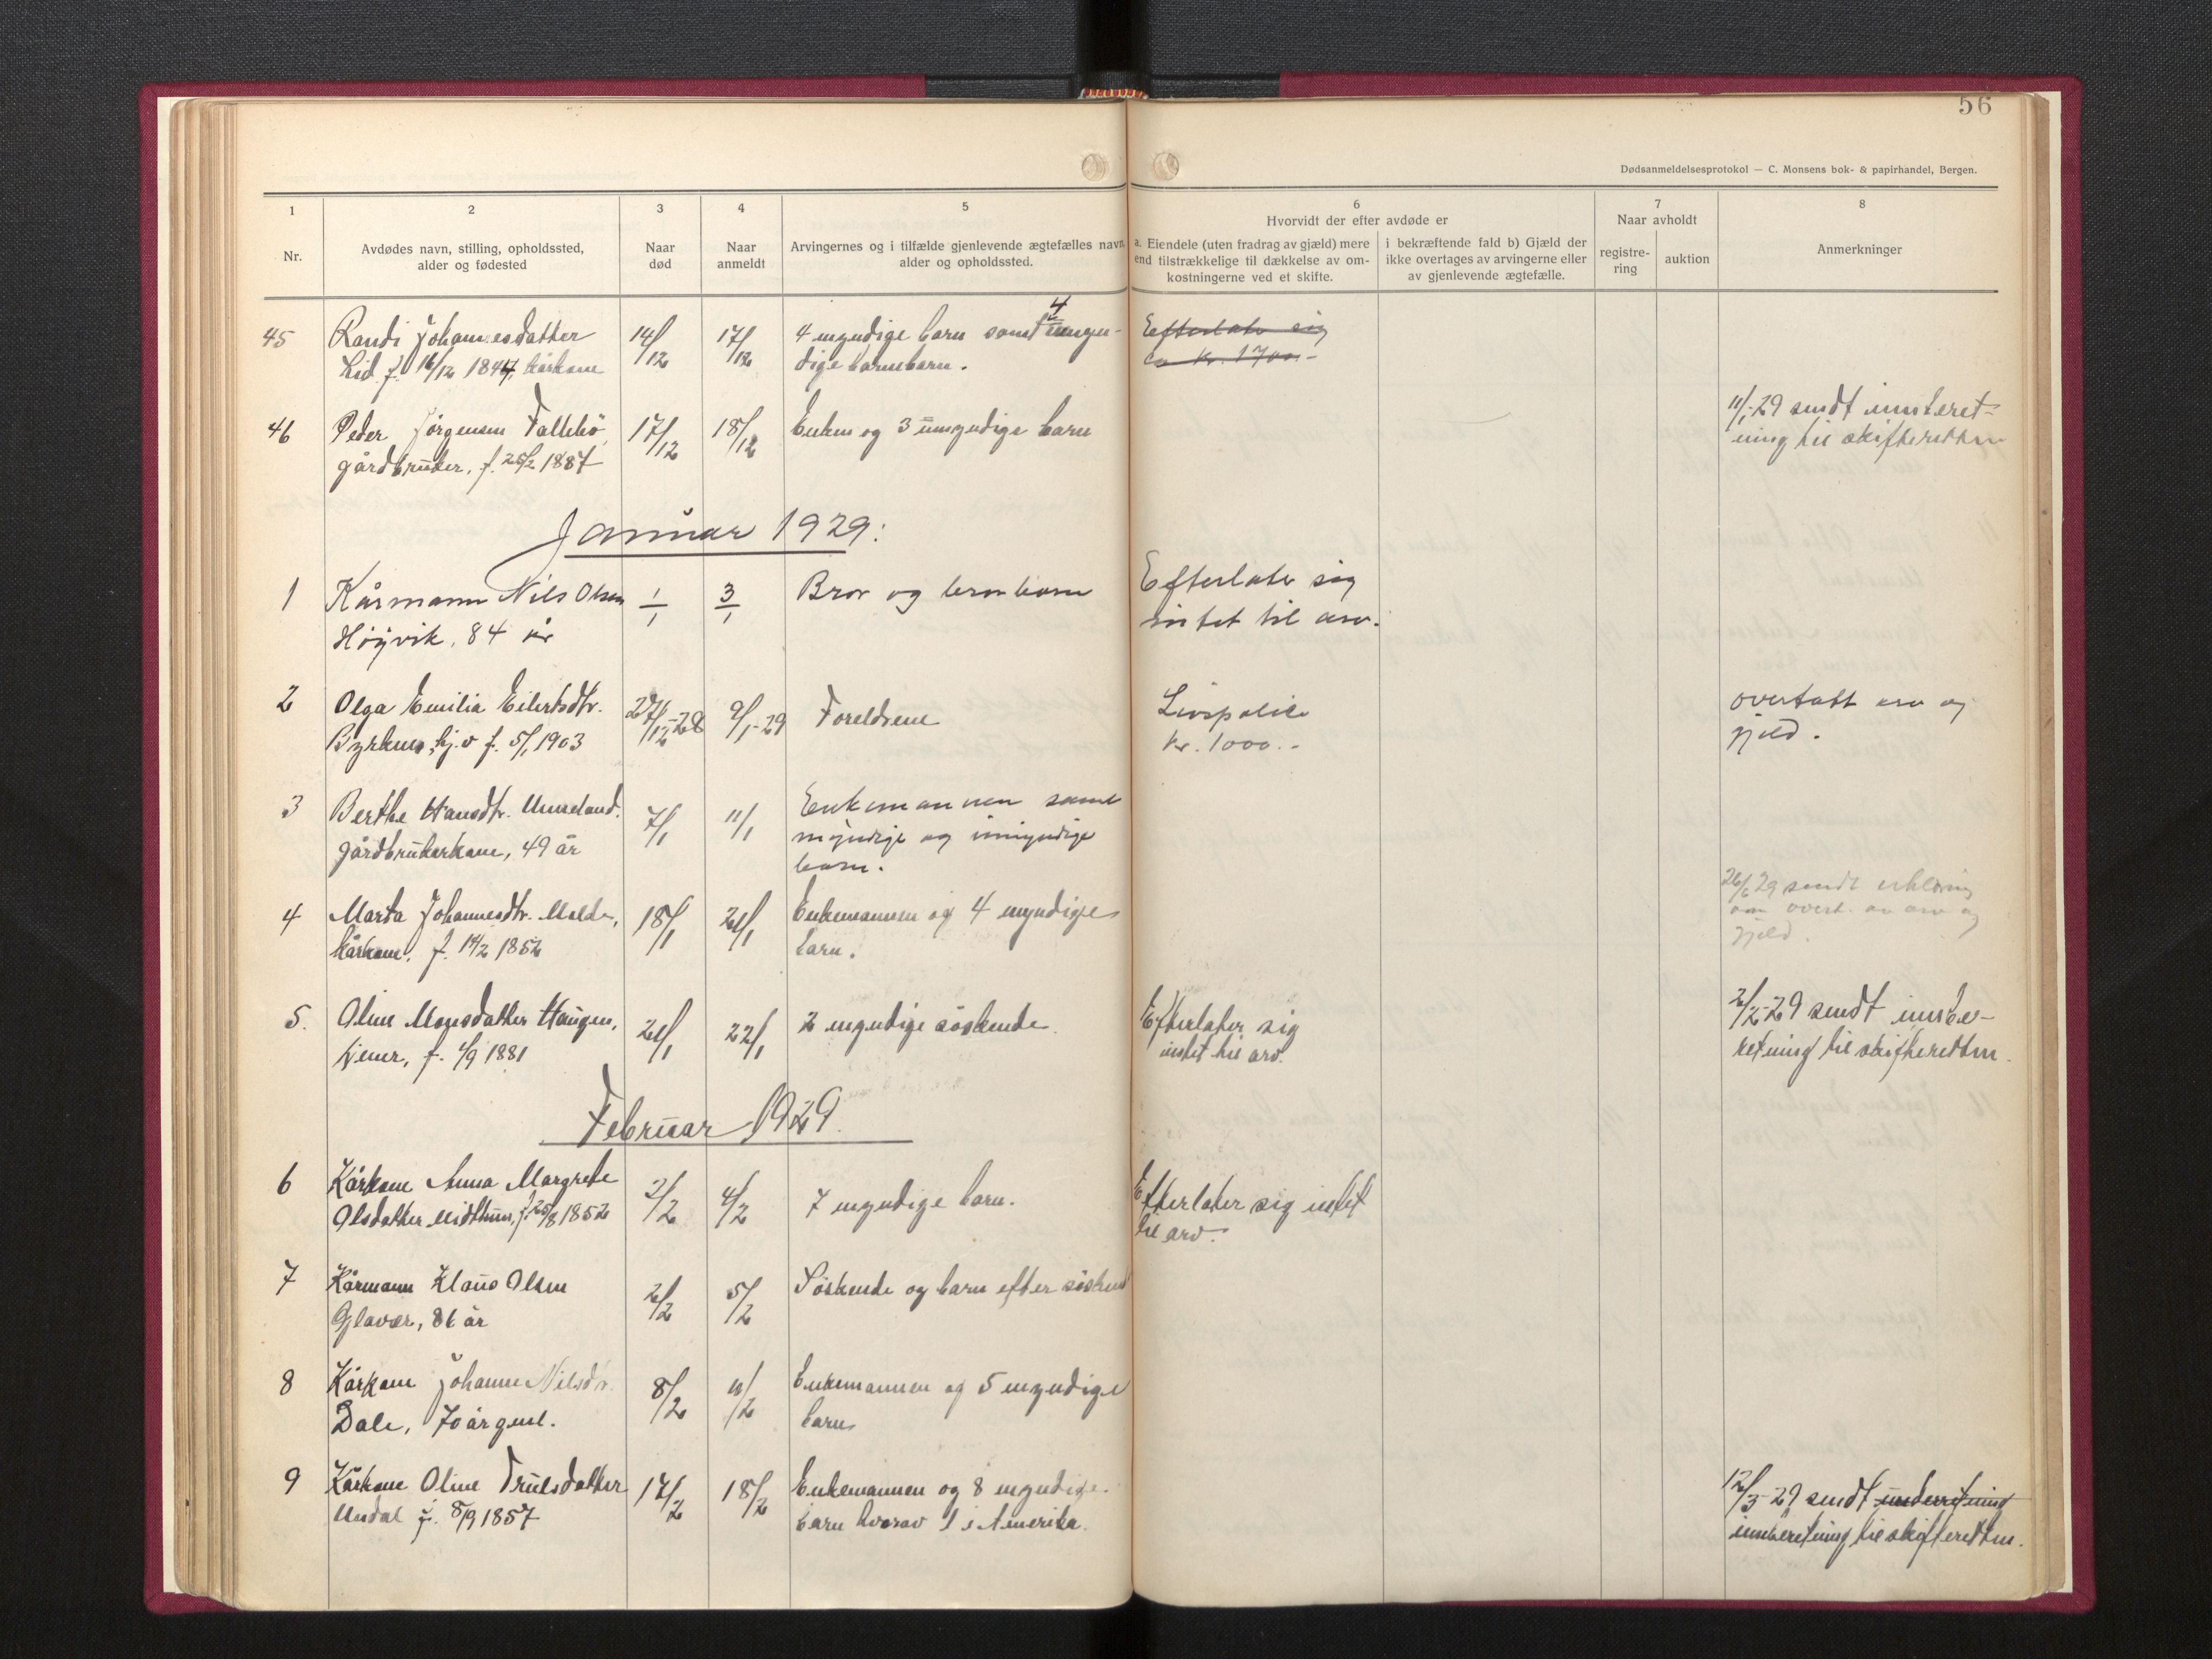 56
Dødsanmeldelsesprotokol — C. Monsens bok- & papirhandel, Bergen.
1
Nr.
2
Avdødes navn, stilling, opholdssted,
alder og fødested
3
Naar
død
4
Naar
anmeldt
5
Arvingernes og i tilfælde gjenlevende ægtefælles navn,
alder og opholdssted.
6
Hvorvidt der efter avdøde er
a. Eiendele (uten fradrag av gjæld) mere
end tilstrækkelige til dækkelse av om-
kostningerne ved et skifte.
i bekræftende fald b) Gjæld der
ikke overtages av arvingerne eller
av gjenlevende ægtefælle.
7
Naar avholdt
registre-
ring
auktion
8
Anmerkninger
45
Randi Johannesdatter
Lid f. 16/12 1844, kårkone
14/12
17/12
4 myndige barn samt 4 umyn-
dige barnebarn.
Efterlater sig
ca kr. 1700.-
46
Peder Jørgensen Fallebö
gårdbruker, f. 25/2 1887
17/12
18/12
Enken og 3 umyndige barn
11/1-29 sendt innberet-
ning til skifteretten
Januar 1929:
1
Kårmann Nils Olsen
Höyvik, 84 år
1/1
3/1
Bror og brorbarn
Efterlater sig
intet til arv.
2
Olga Emilia Eilertsdtr.
Byrknes, hj.v f. 5/1 1903
27/12-28
9/1-29
Foreldrene
Livspolice
kr. 1000.-
overtatt arv og
gjeld.
3
Berthe Hansdtr.
gårdbrukerkone, 49 år
7/1
11/1
Enkemannen samt
myndige og umyndige
barn.
4
Marta Johannesdtr. Molde,
kårkone, f. 14/2 1852
18/1
21/1
Enkemannen og 4 myndige
barn.
26/6 29 sendt erklæring
om overt. av arv og
gjeld.
5.
Oline Monsdatter Haugen,
f. 4/9 1881
21/1
22/1
2 myndige söskende
Efterlater sig
intet til arv.
2/2-29 sendt innbe-
retning til skifteretten.
Februar 1929.
6
Kårkone Anna Margrete
Olsdatter Midttun, f. 25/8 1852
2/2
4/2
7 myndige barn.
Efterlater sig intet
til arv.
7
Kårmann Klaus Olsen
Glavær, 86 år
2/2
5/2
Söskende og barn efter söskend
8
Kårkone Johanne Nilsdtr.
Dale, 70 år gml.
8/2
11/2
Enkemannen og 5 myndige
barn
9
Kårkone Oline Trulsdatter
Undal f. 8/9 1857
17/2
18/2
Enkemannen og 8 myndige
barn hvorav 1 i Amerika.
12/3-29 sendt underretning
innberetning til skifteretten.